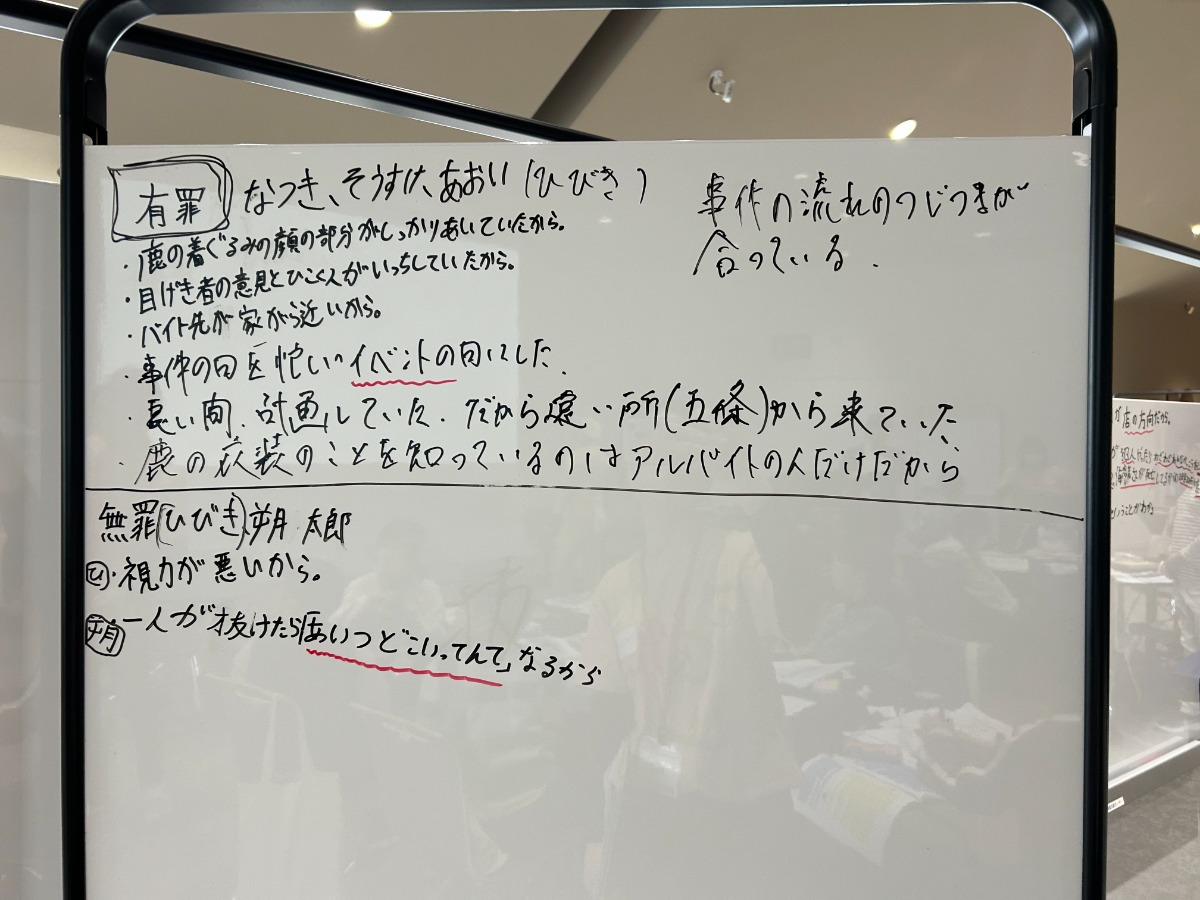 有罪 なつき、そうすけ、あおい(ひびき)
・鹿の着ぐるみの顔の部分がしっかりあいていたから。
・目げき者の意見とひこく人がいっちしていたから。
・バイト先が家から近いから。
・事件の日を忙しいイベントの日にした.
・長い間、計画していた.だから遠い所(五條)から来ていた
・鹿の衣装のことを知っているのはアルバイトの人だけだから
事件の流れのつじつまが
合っている.
無罪(ひびき)、朔太郎
ひ・視力が悪いから。
朔・一人が抜けたら「あいつどこいってんて」なるから
店の方向だから。
ということがわかる